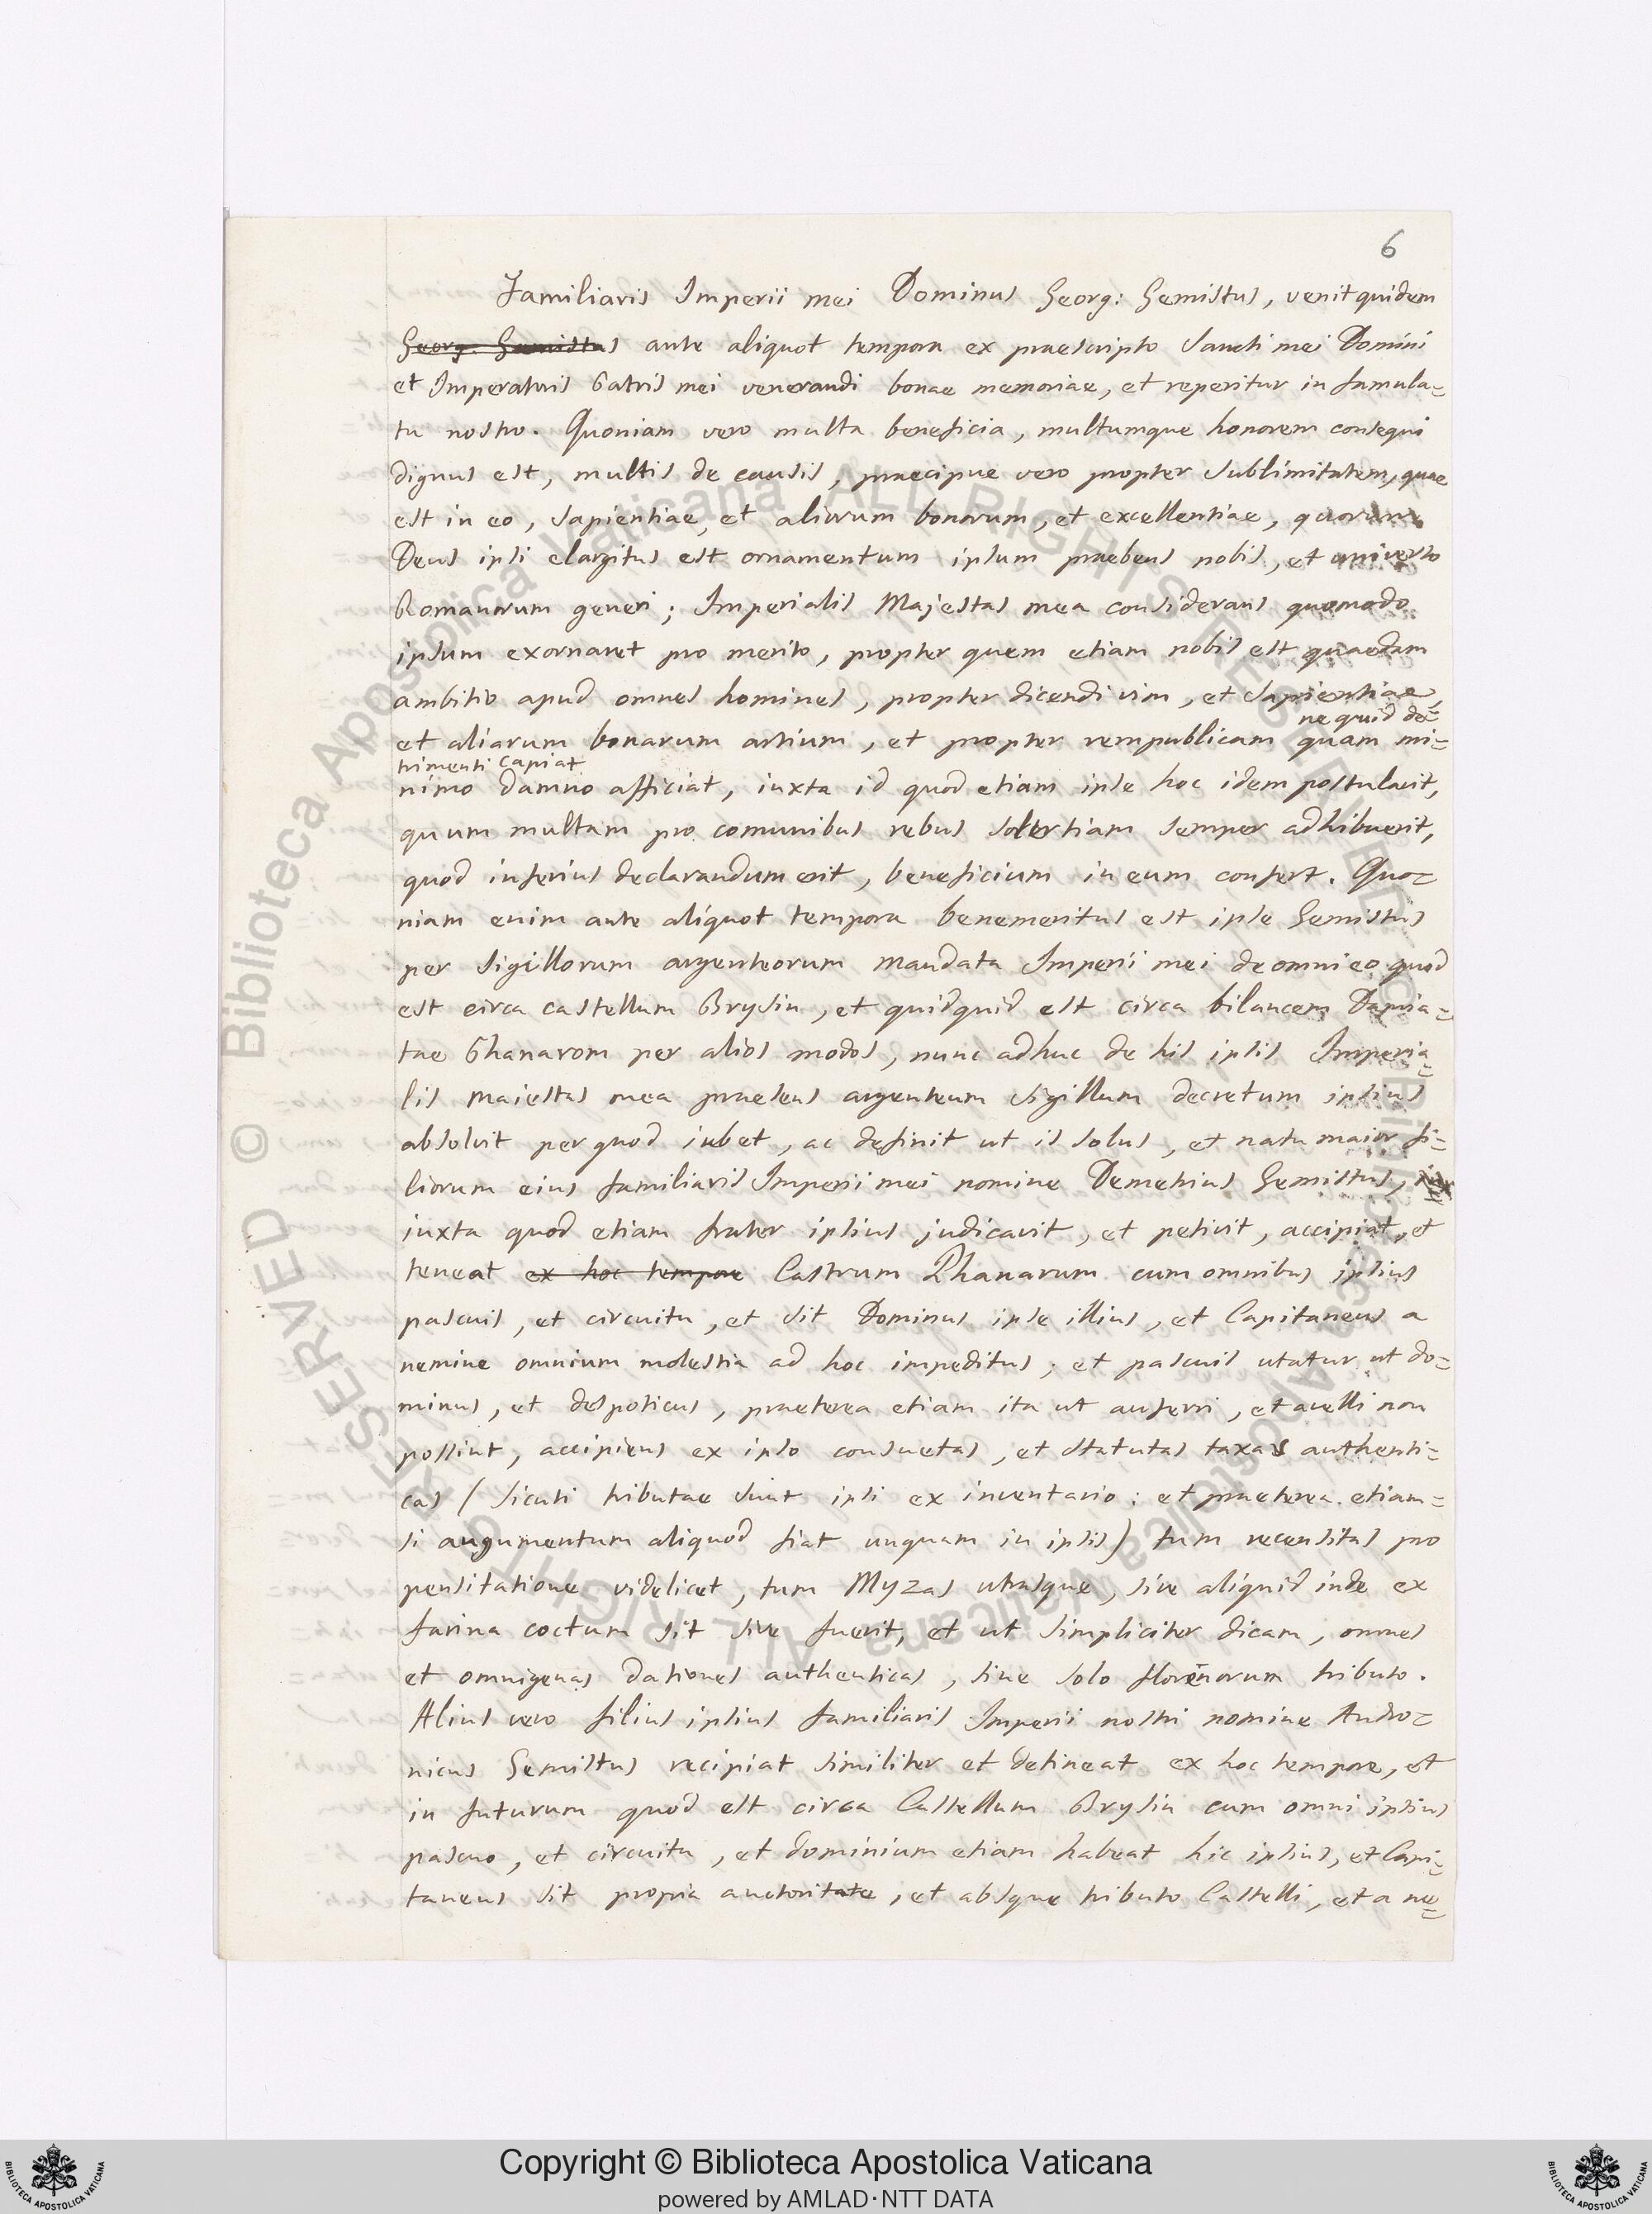 6
Familiaris Imperii mei Dominus Georg: Gemistus, venit quidem
Georg: Gemistus ante aliquot tempora ex praescripto Sancti mei Domini
et Imperatoris Patris mei venerandi bonae memoriae, et reperitur in famula=
tu nostro. Quoniam vero multa beneficia, multumque honorem consequi
dignus est, multis de causis, praecipue vero propter sublimitatem, quae
est in eo, sapientiae, et aliorum bonorum, et excellentiae, quorum
Deus ipsi elargitus est ornamentum ipsum praebens nobis, et universo
Romanorum generi; Imperialis Majestas mea considerans quomodo
ipsum exornaret pro merito, propter quem etiam nobis est quaedam
ambitio apud omnes homines, propter dicendi vim, et sapientiae,
ne quid de=
et aliarum bonarum artium, et propter rempublicam quam mi=
trimenti capiat
nimo damno afficiat, iuxta id quod etiam ipse hoc idem postulavit,
quum multam pro comunibus rebus solertiam semper adhibuerit,
quod inferius declarandum erit, beneficium in eum confert. Quo=
niam enim ante aliquot tempora benemeritus est ipse Gemistus
per sigillorum argenteorum mandata Imperii mei de omni eo quod
est circa castellum Brysin, et quidquid est circa bilancem Damia=
tae Phanarom per alios modos, nunc adhuc de his ipsis Imperia=
lis maiestas mea praesens argenteum sigillum decretum ipsius
absolvit per quod iubet, ac definit ut is solus, et natu maior fi=
liorum eius familiaris Imperii mei nomine Demetrius Gemistus,
iuxta quod etiam frater ipsius judicavit, et petivit, accipiat, et
teneat ex hoc tempore Castrum Phanarum cum omnibus ipsius
pascuis, et circuitu, et sit Dominus ipse illius, et Capitaneus a
nemine omnium molestia ad hoc impeditus; et pascuis utatur ut do=
minus, et despoticus, praeterea etiam ita ut auferri, et avelli non
possint, accipiens ex ipso consuetas, et statutas taxas authenti=
cas (sicuti tributae sunt ipsi ex inventario: et praeterea etiam=
si augumentum aliquod fiat unquam in ipsis) tum recensitas pro
pensitatione videlicet, tum Myzas utrasque, sive aliquid inde ex
farina coctum sit sive fuerit, et ut simpliciter dicam, omnes
et omnigenas dationes authenticas, sine solo florenorum tributo.
Alius vero filius ipsius familiaris Imperii nostri nomine Andro=
nicus Gemistus recipiat similiter et detineat ex hoc tempore, et
in futurum quod est circa Castellum Brysin cum omni ipsius
pascuo, et circuitu, et dominium etiam habeat hic ipsius, et Capi=
taneus sit propria auctoritate, et absque tributo Castelli, et a ne=
© Biblioteca Apostolica Vaticana ALL RIGHTS RESERVED
Copyright © Biblioteca Apostolica Vaticana
powered by AMLAD·NTT DATA
BIBLIOTECA APOSTOLICA VATICANA
BIBLIOTECA APOSTOLICA VATICANA